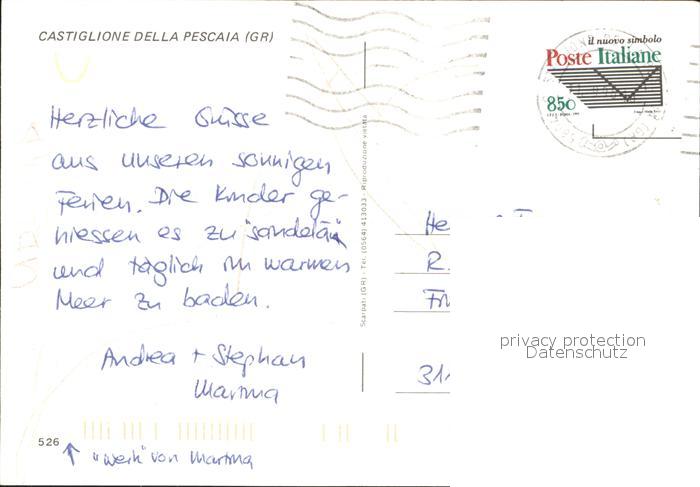 CASTIGLIONE DELLA PESCAIA (GR)
il nuovo simbolo
Poste Italiane
850
Herzliche Grüsse
aus unseren sonnigen
Ferien. Die Kinder ge-
niessen es zu "sändelä"
und täglich im warmen
Meer zu baden.
Andrea + Stephan
Martina
526
"werk" von Martina
Scarpati (GR) - Tel. (0564) 413033 - Riproduzione vietata
He
R.
Fr
311
privacy protection
Datenschutz